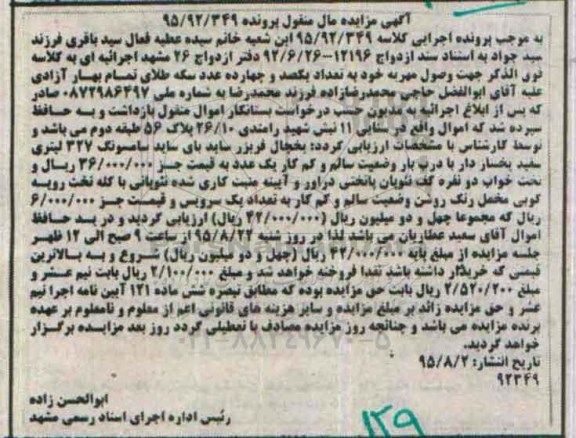 آگهی مزایده مال منقول پرونده ۹۵/۹۲/۳۴۹
به موجب پرونده اجرایی کلاسه ۹۵/۹۲/۳۴۹ این شعبه خانم سیده عطیه فعال سید باقری فرزند
سید جواد به استناد سند ازدواج ۱۲۱۹۶-۹۲/۶/۲۶ دفتر ازدواج ۲۶ مشهد اجرائیه ای به کلاسه
فوق الذکر جهت وصول مهریه خود به تعداد یکصد و چهارده عدد سکه طلای تمام بهار آزادی
علیه آقای ابوالفضل حاجی محمدرضازاده فرزند محمدرضا به شماره ملی ۰۸۷۲۹۸۶۴۹۷ صادر
که پس از ابلاغ اجرائیه به مدیون حسب درخواست بستانکار اموال منقول بازداشت و به حافظ
سپرده شد که اموال واقع در سنایی ۱۱ نبش شهید رامندی ۲۶/۱۰ پلاک ۵۶ طبقه دوم می باشد و
توسط کارشناس با مشخصات ارزیابی گردد: یخچال فریزر ساید بای ساید سامسونگ ۳۲۷ لیتری
سفید یخساز دار با درب بار وضعیت سالم و کم کار یک عدد به قیمت جز ۳۶/۰۰۰/۰۰۰ ریال و
تخت خواب دو نفره کف نئوپان پاتختی دراور و آیینه منبت کاری شده نئوپانی با کله تخت رویه
کوبی مخمل رنگ روشن وضعیت سالم و کم کار به تعداد یک سرویس و قیمت جز ۶/۰۰۰/۰۰۰
ریال که مجموعا چهل و دو میلیون ریال (۴۲/۰۰۰/۰۰۰ ریال) ارزیابی گردید و در ید حافظ
اموال آقای سعید عطاریان می باشد لذا در روز شنبه ۹۵/۸/۲۲ از ساعت ۹ صبح الی ۱۲ ظهر
جلسه مزایده از مبلغ پایه ۴۲/۰۰۰/۰۰۰ ریال (چهل و دو میلیون ریال) شروع و به بالاترین
قیمتی که خریدار داشته باشد نقدا فروخته خواهد شد و مبلغ ۲/۱۰۰/۰۰۰ ریال بابت نیم عشر و
مبلغ ۲/۵۲۰/۲۰۰ ریال بابت حق مزایده بوده که مطابق تبصره شش ماده ۱۲۱ آیین نامه اجرا نیم
عشر و حق مزایده زائد بر مبلغ مزایده و سایر هزینه های قانونی اعم از معلوم و نامعلوم بر عهده
برنده مزایده می باشد و چنانچه روز مزایده مصادف با تعطیلی گردد روز بعد مزایده برگزار
خواهد گردید.
تاریخ انتشار: ۹۵/۸/۲
۹۲۳۴۹
ابوالحسن زاده
رئیس اداره اجرای اسناد رسمی مشهد
۱۲۹